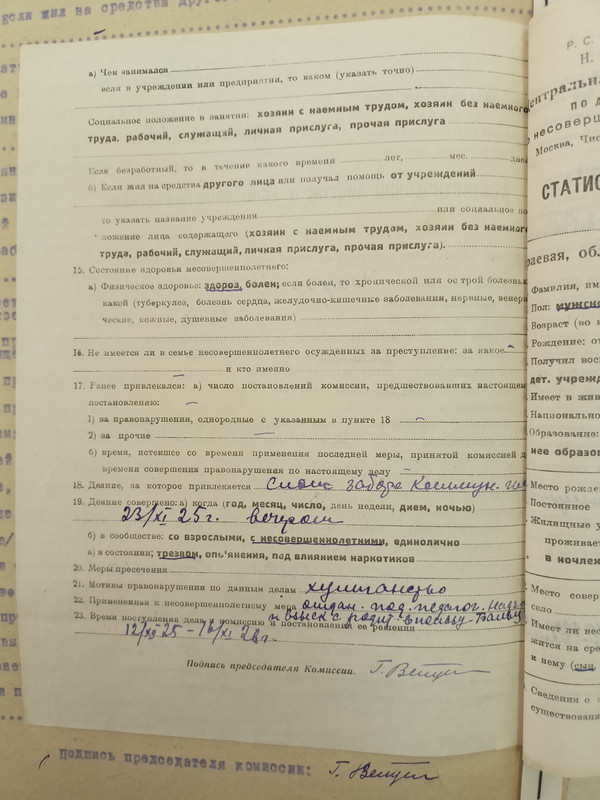 если жил на средства друго
а) Чем занимался
если в учреждении или предприятии, то каком (указать точно)
Социальное положение в занятии: хозяин с наемным трудом, хозяин без наемного
труда, рабочий, служащий, личная прислуга, прочая прислуга
Если безработный, то в течение какого времени лет, мес. дней
б) Если жил на средства другого лица или получал помощь от учреждений
то указать название учреждения или социальное по
ложение лица содержащего (хозяин с наемным трудом, хозяин без наемного
труда, рабочий, служащий, личная прислуга, прочая прислуга).
15. Состояние здоровья несовершеннолетнего:
а) Физическое здоровье: здоров, болен; если болен, то хронической или острой болезнью
какой (туберкулез, болезнь сердца, желудочно-кишечные заболевания, нервные, венери
ческие, кожные, душевные заболевания)
16. Не имеется ли в семье несовершеннолетнего осужденных за преступление: за какое
и кто именно
17. Ранее привлекался: а) число постановлений комиссии, предшествовавших настоящем
постановлению:
1) за правонарушения, однородные с указанным в пункте 18
2) за прочие
б) время, истекшее со времени применения последней меры, принятой комиссией д
времени совершения правонарушения по настоящему делу
18. Деяние, за которое привлекается забора
19. Деяние совершено: а) когда (год, месяц, число, день недели, днем, ночью)
23/XI 25 г. вечером
б) в сообществе: со взрослыми, с несовершеннолетними, единолично
в) в состоянии: трезвом, опьянения, под влиянием наркотиков
20. Меры пресечения
21. Мотивы правонарушения по данным дела хулиганство
22. Примененная к несовершеннолетнему мера отдан. под. педагог. надз
23. Время поступления дела в комиссию и постановления ее решения
12/XII-25 -
Подпись председателя Комиссии.
Подпись председателя комиссии:
Р. С.
Н.
Центральна
по д
несоверш
Москва, Чис
СТАТИС
раевая, обл
Фамилия, им
Пол: мужско
Возраст (по
Рождение: от
Получил вос
дет. учрежд
Имеет в жив
Национально
Образование:
нее образов
Место рожде
Постоянное
Жилищные у
проживает
в ночлен
Место совер
село
Имеет ли нес
жится на сре
к нему (сын,
Сведения о
существовани